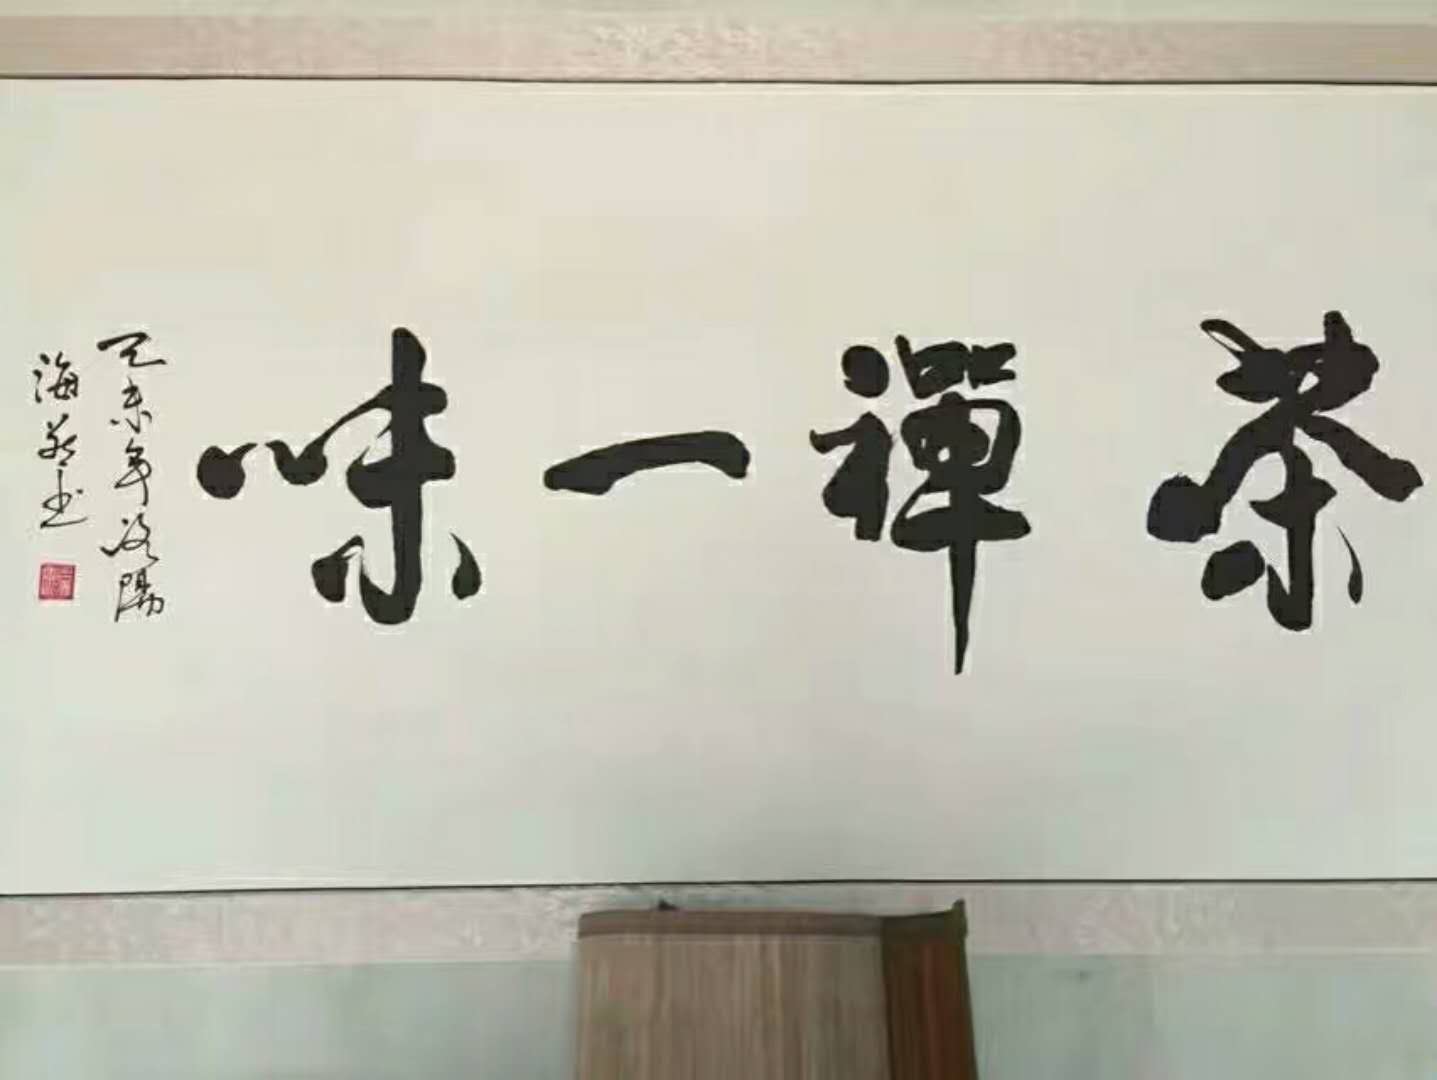 茶禪一味
乙未年洛陽
海